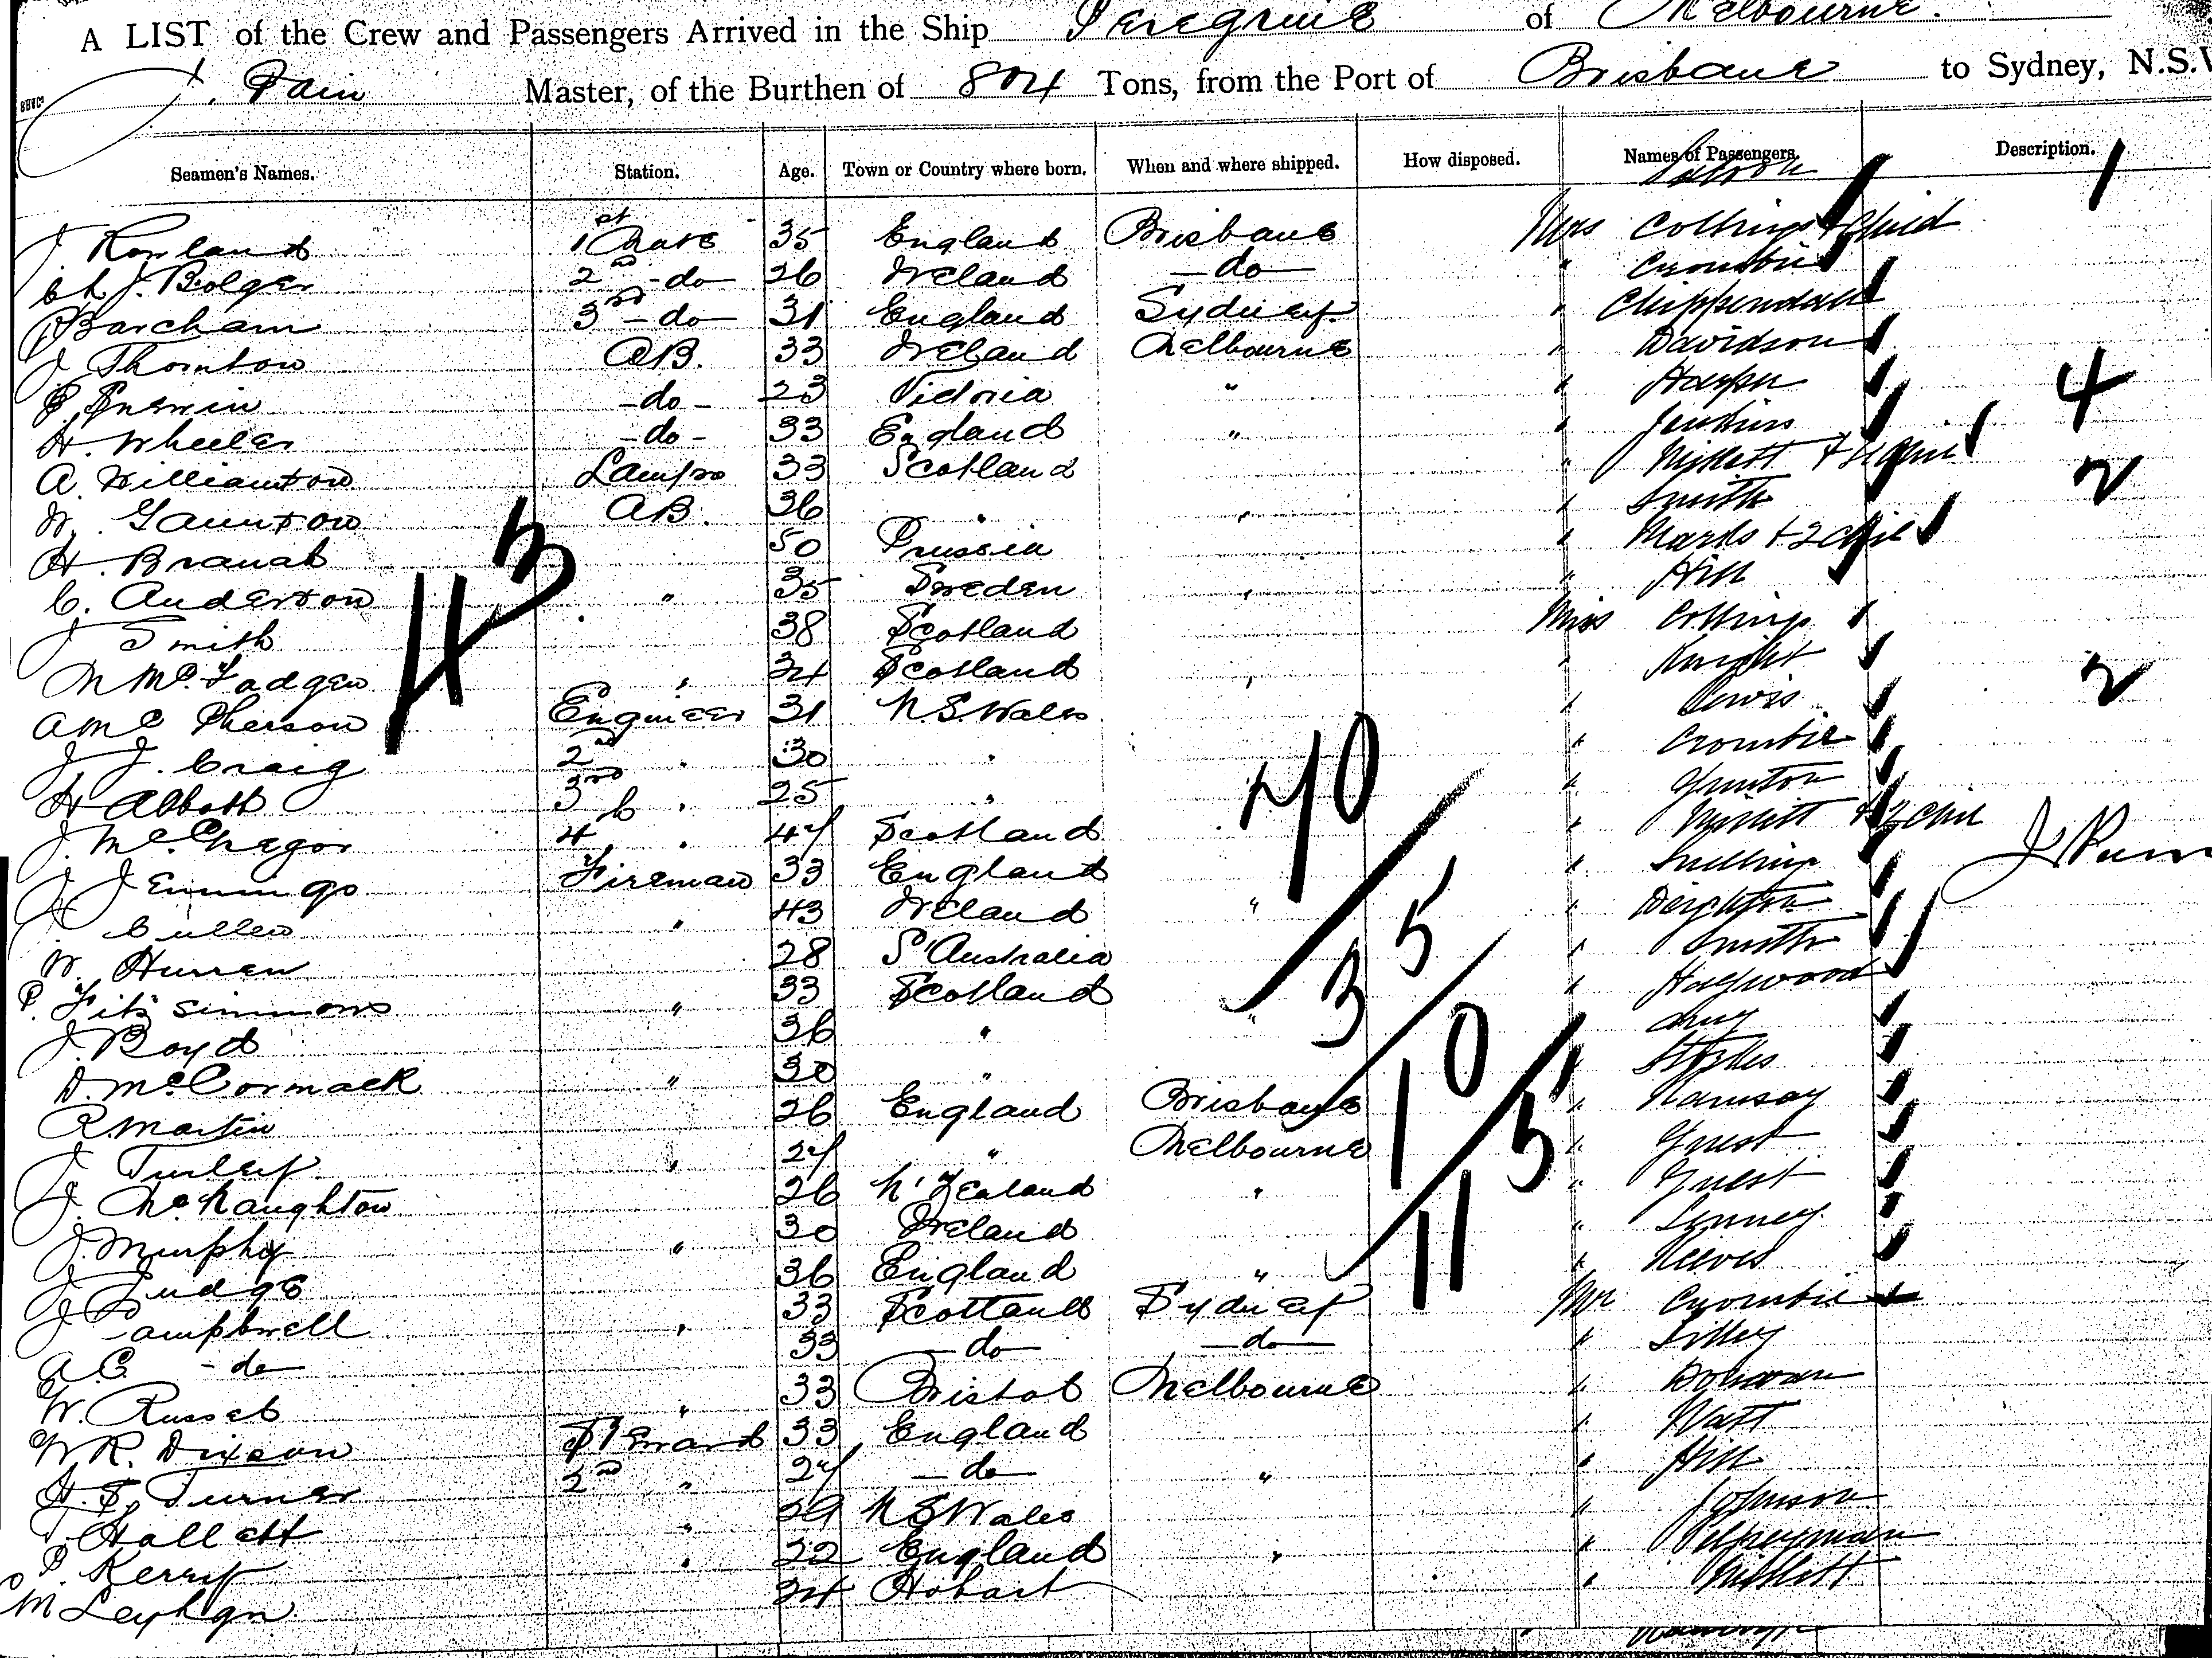 A LIST of the Crew and Passengers Arrived in the Ship Peregrine of Melbourne.
J. Pain Master, of the Burthen of 804 Tons, from the Port of Brisbane to Sydney, N.S.W
Seamen's Names. Station. Age. Town or Country where born. When and where shipped. How disposed. Names of Passengers. Description.
Saloon 1
J Rowland 1st Mate 35 England Brisbane Mrs Collings & Child
Ch J. Bolger 2nd -do- 26 Ireland -do- " Crombie
Barcham 3rd -do- 31 England Sydney " Chippendall
J Thornton AB. 33 Ireland Melbourne " Davidson
-do- 23 Victoria " " Harper 4
H. Wheeler -do- 33 England " " Jenkins
A. Williamson Lamps 33 Scotland " Millett &
W. Gaunson AB. 36 " " " Smith 2
H. Branat 50 Prussia " Marks + 2 Chil
C. Anderson " 35 Sweden " " Hill
J Smith 38 Scotland Miss Collings
M McFadgen " 34 Scotland " " Knight
A McPherson Engineer 31 N.S. Wales " Lewis 2
J J. Craig 2nd " 30 " " Crombie
H Abbott 3rd " 25 " "
J. McGregor 4th " 47 Scotland " Millett & 2 Chil
J Jennings Fireman 33 England " Snelling J Pain
J. Cullen " 43 Ireland " " Deighton
W. Hurren 28 S' Australia " Smith
P. Fitzsimmons " 33 Scotland " " Haywood
J. Boyd 36 "
D. McCormack " 30 " " Stokes
R. Martin 26 England Brisbane " Ramsay
J Turley " 27 " Melbourne " Guest
J. McNaughton 26 N' Zealand " " Guest
J. Murphy " 30 Ireland "
J Judge 36 England " " Reeves
J Campbwell " 33 Scotland Sydney Mr Crombie
A C -do- 33 -do- -do- " Lilley
W. Russel " 33 Bristol Melbourne " Donovan
W R. Dixson Steward 33 England " Natt
H. S. Turner 2nd " 27 -do- " " Hill
T. Hallett " 29 N S Wales " Johnson
P. Kerry " 22 England " "
M 24 Hobart " Millett
43
70
35
10
5
11